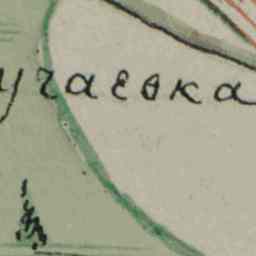 учаевка